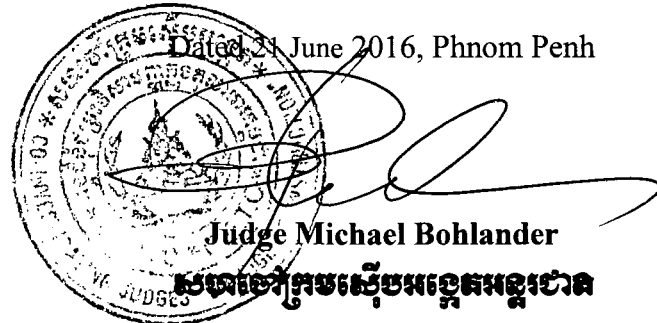 Dated 21 June 2016, Phnom Penh
Judge Michael Bohlander
សហចៅក្រមស៊ើបអង្កេតអន្តរជាតិ